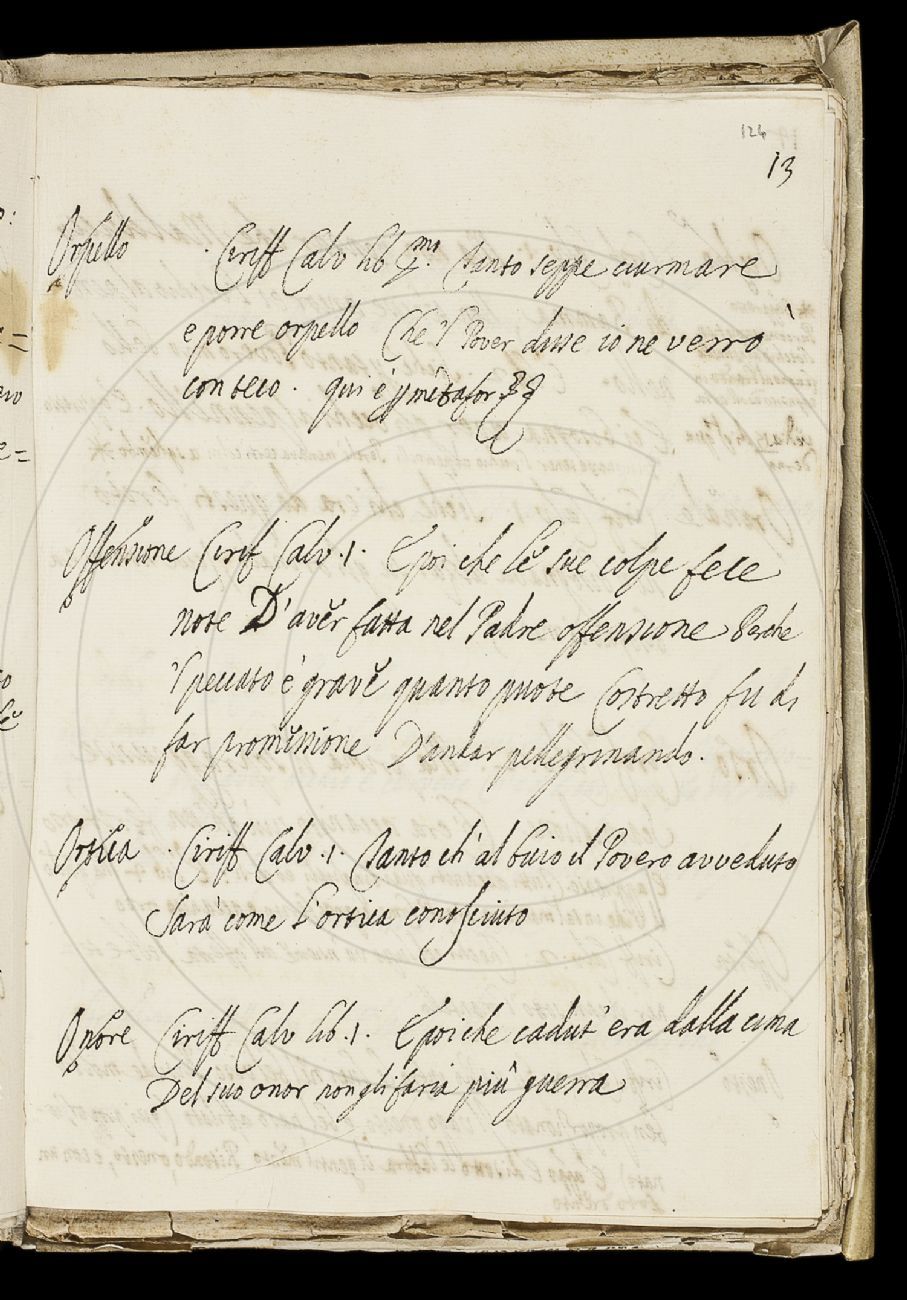 124
13
Orpello Ciriff Calv lib pmo. Tanto seppe ciurmare
e porre orpello Che 'l Pover disse io ne verrò
con teco. qui è metafor
Offensione Cirif Calv. 1. E poi che le sue colpe fece
note D'aver fatta nel Padre offensione Perche
'l peccato è grave quanto puote Costretto fu di
far promessione D'andar pellegrinando.
Ortica Ciriff Calv. 1. Tanto ch' al buio il Povero avveduto
Sarà come l'ortica conosciuto
Onore Ciriff Calv lib. 1. E poi che cadut' era dalla cima
Del suo onor non gli faria più guerra